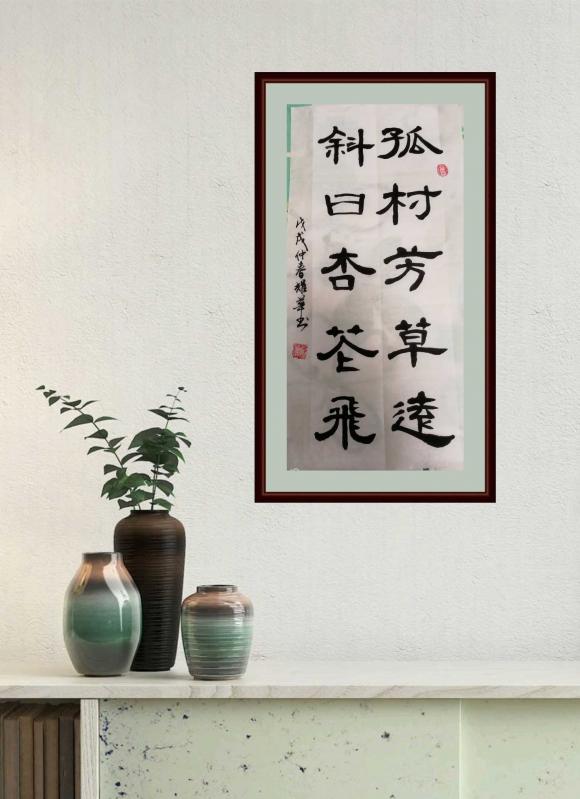 孤村芳草遠
斜日杏花飛
戊戌仲春耀華书